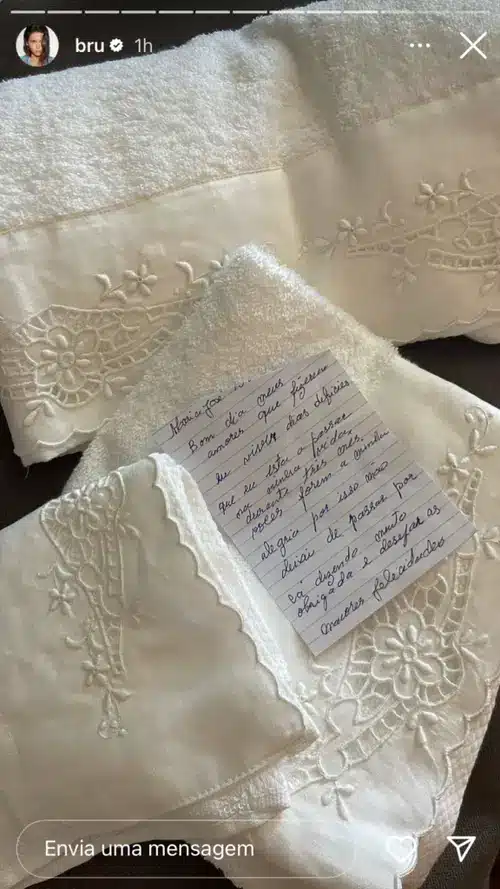 bru 1h
Bom dia meus
amores que fizeram
me viver dias difíceis
que eu estou a passar
na minha vida,
durante três mês,
vocês foram a minha
alegria por isso não
deixei de passar por
cá dizendo muito
obrigada e desejar as
maiores felicidades
Envia uma mensagem